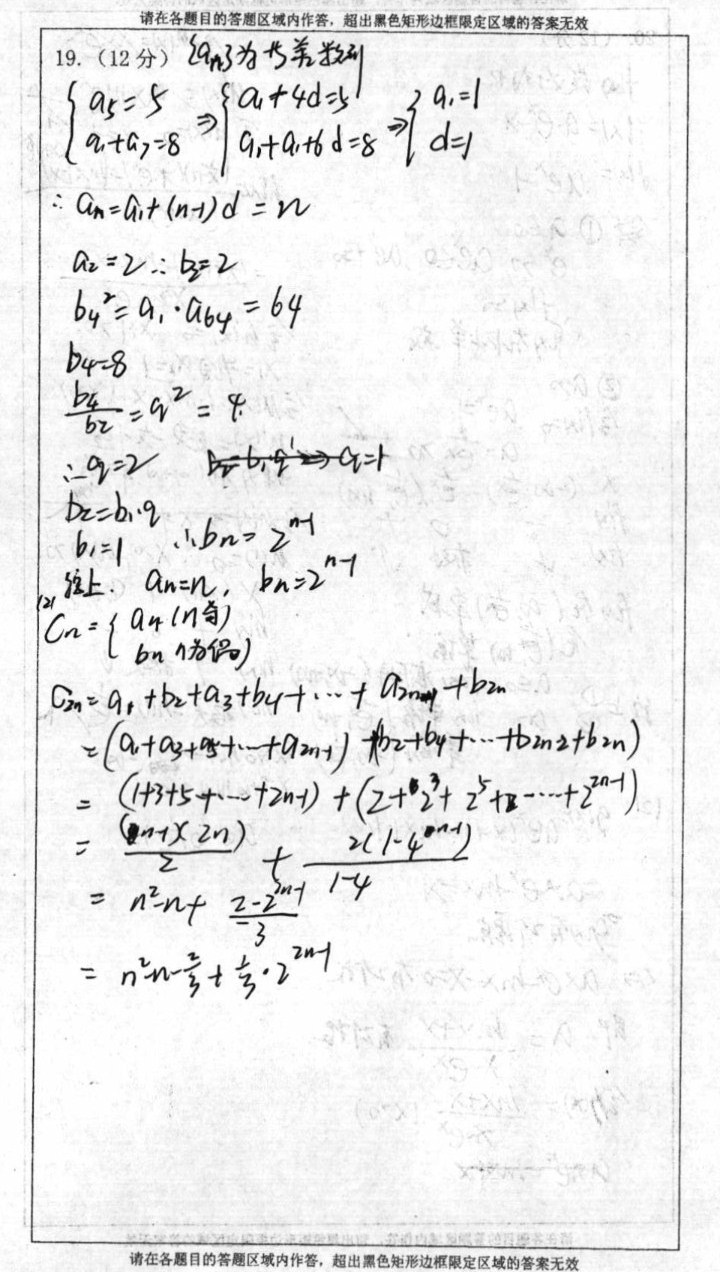 请在各题目的答题区域内作答，超出黑色矩形边框限定区域的答案无效
19.（12分） {an}为等差数列
{ a5=5 a1+a7=8 ⇒ { a1+4d=5 a1+a1+6d=8 ⇒ { a1=1 d=1
∴ an=a1+(n-1)d = n
a2=2 ∴ b2=2
b4²=a1·a64=64
b4=8
b4/b2=q²=4
∴q=2
b2=b1·q
b1=1 ∴bn=2^(n-1)
综上. an=n, bn=2^(n-1)
(2)
Cn={ an (n奇) bn (n为偶)
C2n=a1+b2+a3+b4+…+a2n-1+b2n
=(a1+a3+a5+…+a2n-1)+(b2+b4+…+b2n-2+b2n)
= (1+3+5+…+2n-1)+(2+2³+2^5+…+2^(2n-1))
= (n-1)(2n)/2 + 2(1-4^(n-1))/(1-4)
= n²-n+ (2-2^(2n-1))/(-3)
= n²-n-2/3+1/3·2^(2n-1)
请在各题目的答题区域内作答，超出黑色矩形边框限定区域的答案无效